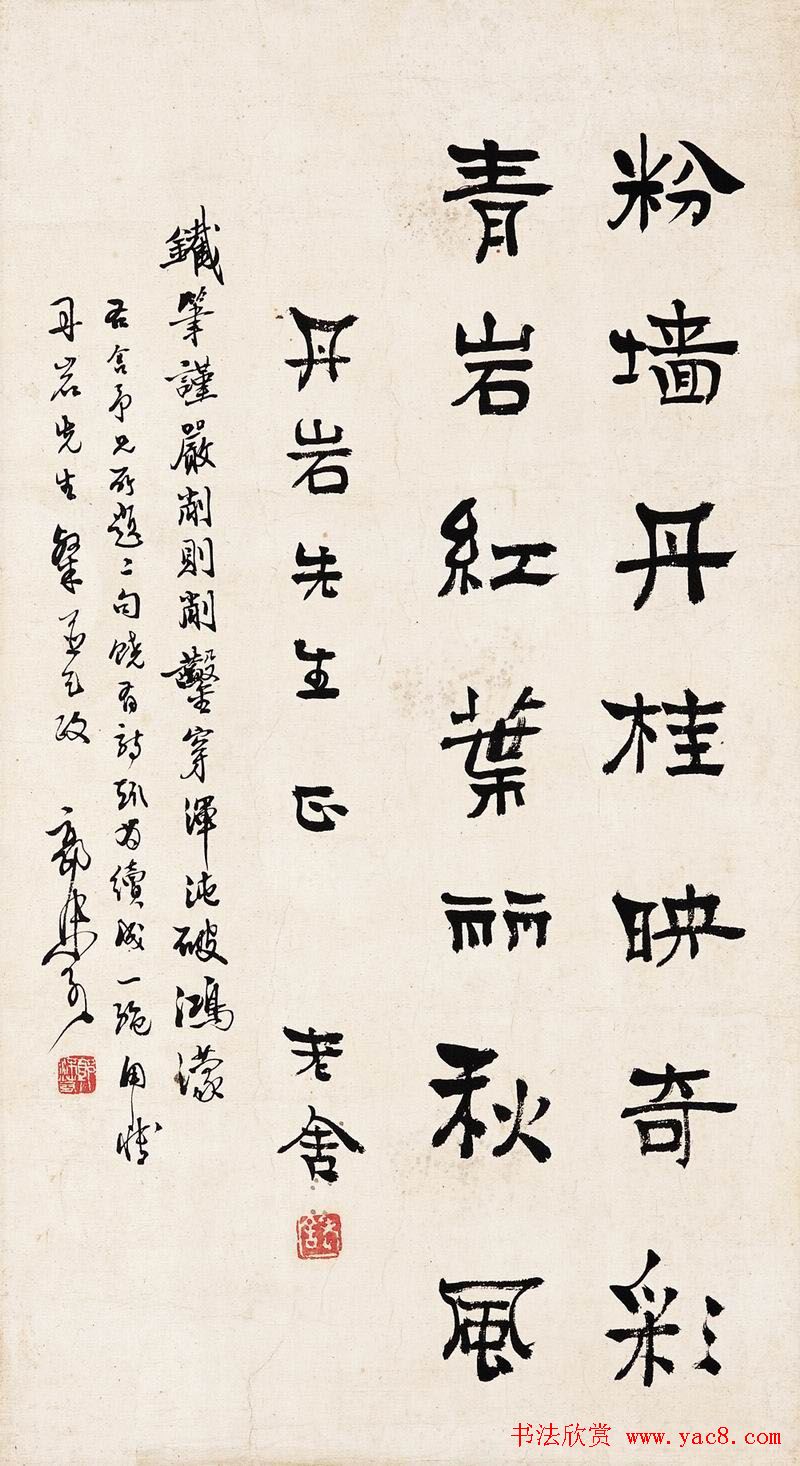 粉墙丹桂映奇彩
青岩紅葉丽秋風
丹岩先生正 老舍
鐵筆謹嚴削則削鑿穿渾沌破鴻濛
右舍予兄所題二句饒有詩趣为續成一絶用博
丹岩先生粲並乞政 郭沫若
老舍
郭沫若
书法欣赏 www.yac8.com